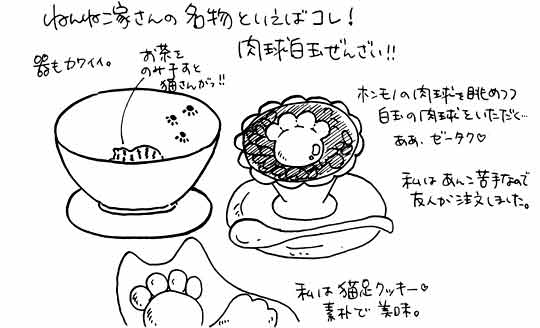 ねんねこ家さんの名物といえばコレ!
肉球白玉ぜんざい!!
器もカワイイ。
お茶を
のみ干すと
猫さんがっ!!
ホンモノの肉球を眺めつつ
白玉の肉球をいただく…
ああ、ゼータク♡
私はあんこ苦手なので
友人が注文しました。
私は猫足クッキー♡
素朴で美味。